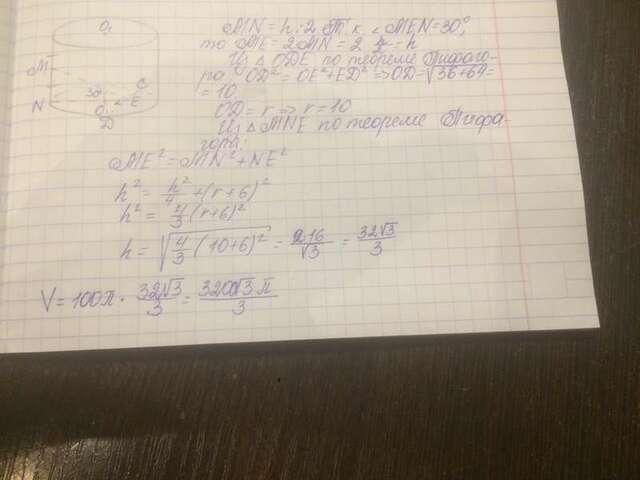 MN = h : 2. Т. к. ∠MEN = 30°,
то ME = 2MN = 2 · h/2 = h
Из △ ODE по теореме Пифаго-
ра OD² = OE² + ED² => OD = √36+64 =
= 10
OD = r => r = 10
Из △ MNE по теореме Пифа-
гора:
ME² = MN² + NE²
h² = h²/4 + (r+6)²
h² = 4/3 (r+6)²
h = √4/3 (10+6)² = 2·16/√3 = 32√3/3
V = 100π · 32√3/3 = 3200√3 π/3
O₁
M
N
30
C
O
E
D